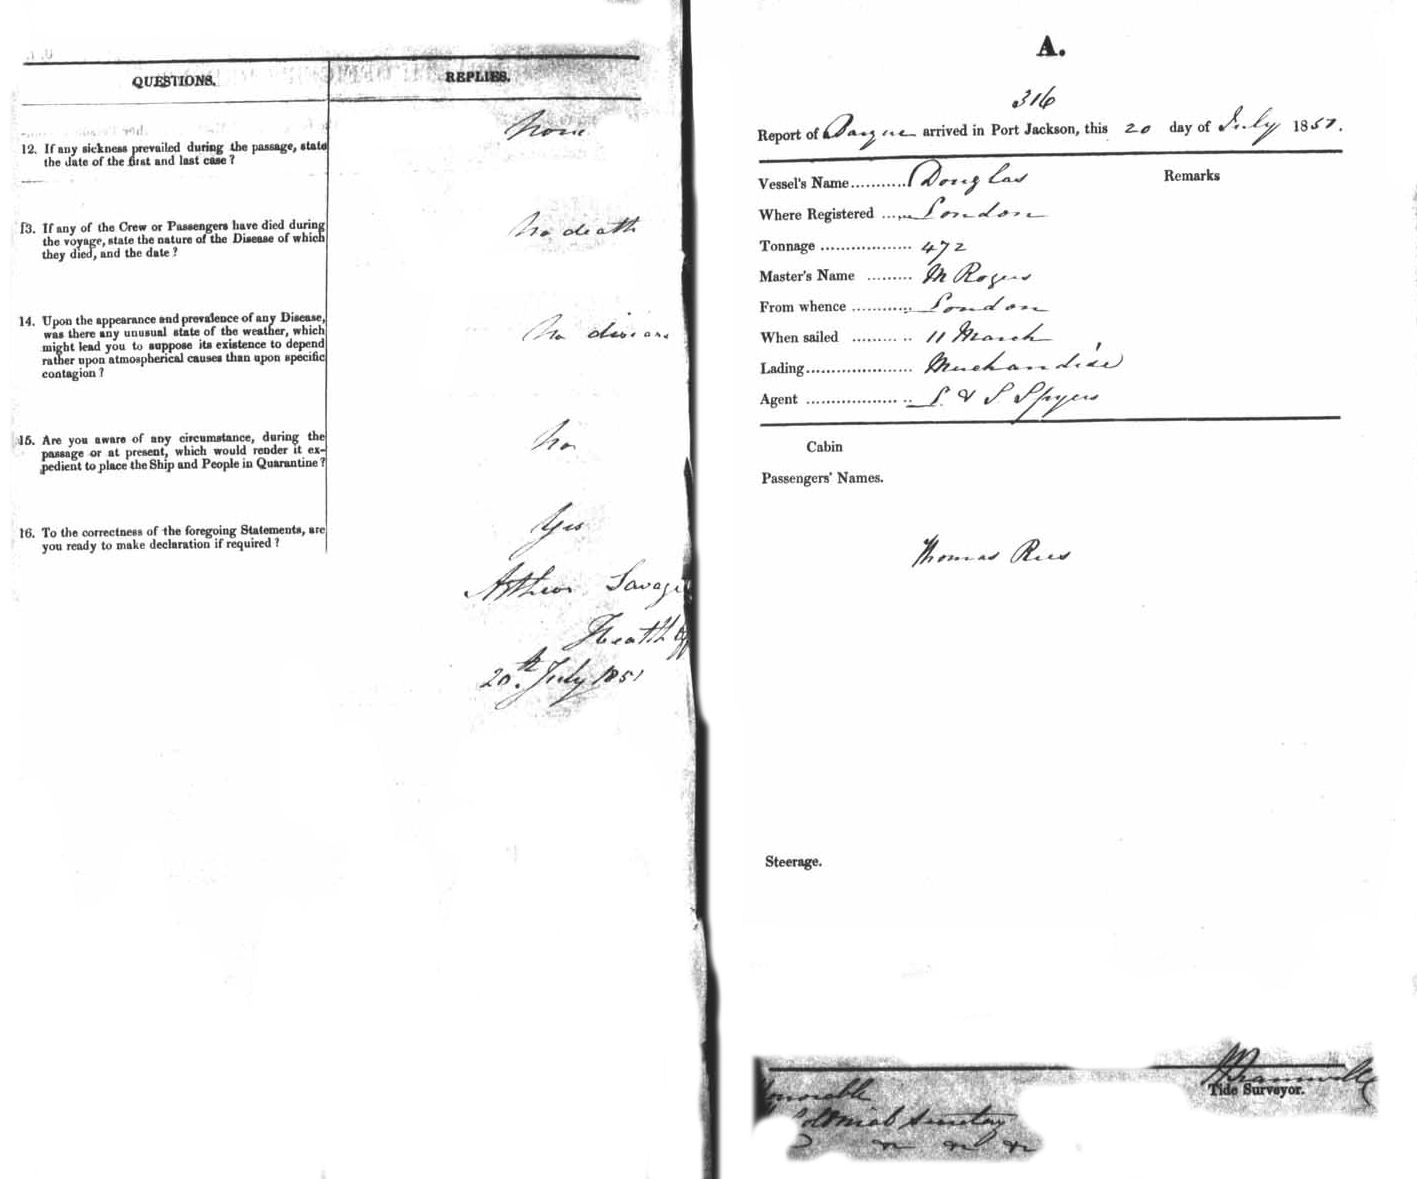 QUESTIONS.
REPLIES.
12. If any sickness prevailed during the passage, state
the date of the first and last case ?
None
13. If any of the Crew or Passengers have died during
the voyage, state the nature of the Disease of which
they died, and the date ?
No death
14. Upon the appearance and prevalence of any Disease,
was there any unusual state of the weather, which
might lead you to suppose its existence to depend
rather upon atmospherical causes than upon specific
contagion ?
No disease
15. Are you aware of any circumstance, during the
passage or at present, which would render it ex-
pedient to place the Ship and People in Quarantine ?
No
16. To the correctness of the foregoing Statements, are
you ready to make declaration if required ?
Yes
Arthur Savage
Health
20th July 1851
A.
316
Report of Barque arrived in Port Jackson, this 20 day of July 1851.
Vessel's Name........... Douglas
Remarks
Where Registered ...... London
Tonnage .................. 472
Master's Name ......... M Rogers
From whence ............ London
When sailed ......... .. 11 March
Lading..................... Merchandise
Agent .................. .. L & S Spyer
Cabin
Passengers' Names.
Thomas Rees
Steerage.
Tide Surveyor.
Honorable
Colonial Secretary
&c &c &c